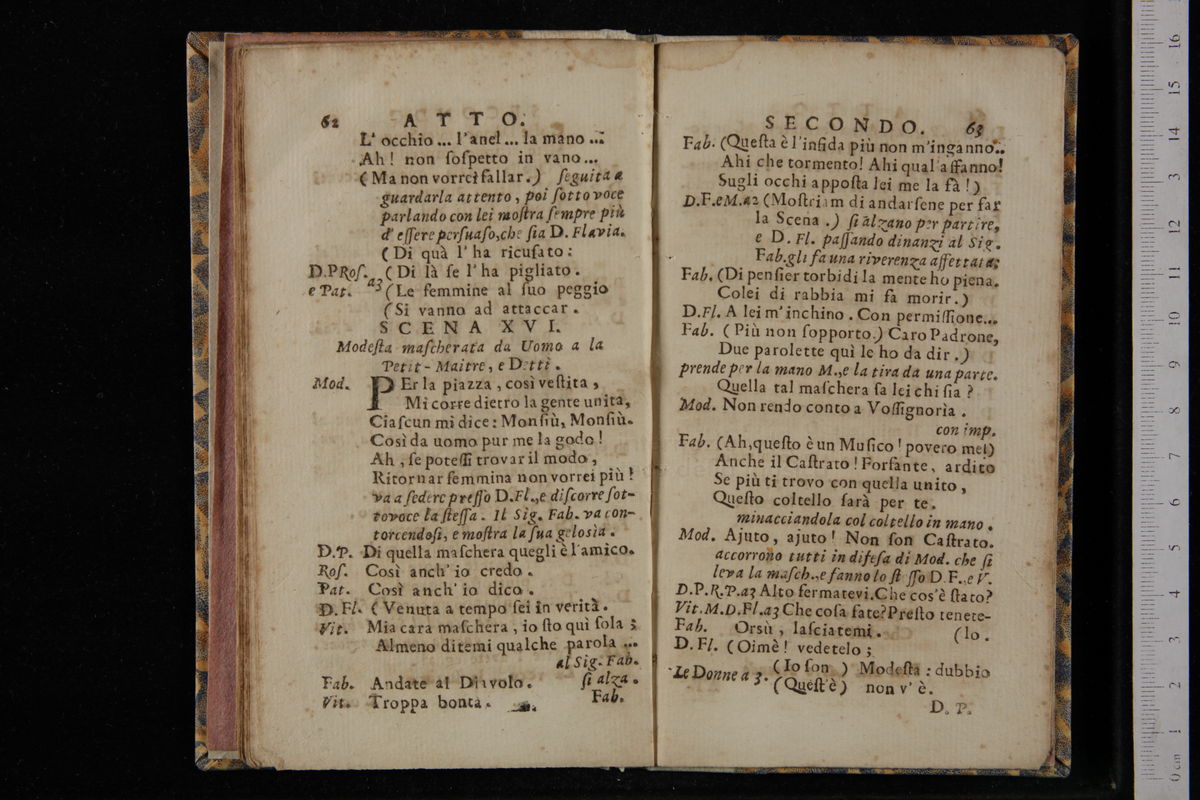 62 ATTO.
L' occhio ... l'anel ... la mano ...
Ah! non ſoſpetto in vano ...
(Ma non vorrei fallar.) ſeguita a
guardarla attento, poi ſotto voce
parlando con lei moſtra ſempre più
d' eſſere perſuaſo, che ſia D. Flavia.
(Di quà l' ha ricuſato:
D.P Roſ. a3 (Di là ſe l' ha pigliato.
e Pat. (Le femmine al ſuo peggio
(Si vanno ad attaccar.
SCENA XVI.
Modeſta maſcherata da Uomo a la
Petit-Maitre, e Detti.
Mod. PEr la piazza, così veſtita,
Mi corre dietro la gente unita,
Ciaſcun mi dice: Monſiù, Monſiù.
Così da uomo pur me la godo!
Ah, ſe poteſſi trovar il modo,
Ritornar femmina non vorrei più!
va a ſedere preſſo D.Fl., e diſcorre ſot-
tovoce la ſteſſa. Il Sig. Fab. va con-
torcendoſi, e moſtra la ſua geloſia.
D.P. Di quella maſchera quegli è l'amico.
Roſ. Così anch' io credo.
Pat. Così anch' io dico.
D.Fl. (Venuta a tempo ſei in verità.
Vit. Mia cara maſchera, io ſto quì ſola;
Almeno ditemi qualche parola ...
al Sig. Fab.
Fab. Andate al Diavolo. ſi alza.
Vit. Troppa bontà. Fab.
SECONDO. 63
Fab. (Queſta è l'infida più non m'inganno..
Ahi che tormento! Ahi qual affanno!
Sugli occhi appoſta lei me la fà!)
D.F.e M.a2 (Moſtriam di andarſene per far
la Scena.) ſi alzano per partire,
e D. Fl. paſſando dinanzi al Sig.
Fab. gli fa una riverenza affettata;
Fab. (Di penſier torbidi la mente ho piena.
Colei di rabbia mi fa morir.)
D.Fl. A lei m' inchino. Con permiſſione...
Fab. (Più non ſopporto.) Caro Padrone,
Due parolette quì le ho da dir.)
prende per la mano M., e la tira da una parte.
Quella tal maſchera ſa lei chi ſia?
Mod. Non rendo conto a Voſſignorìa.
con imp.
Fab. (Ah, queſto è un Muſico! povero me!)
Anche il Caſtrato! Forſante, ardito
Se più ti trovo con quella unito,
Queſto coltello ſarà per te.
minacciandola col coltello in mano.
Mod. Ajuto, ajuto! Non ſon Caſtrato.
accorrono tutti in difeſa di Mod. che ſi
leva la maſch., e fanno lo ſt ſſo D.F., e V.
D.P.R.P.a3 Alto fermatevi. Che cos'è ſtato?
Vit.M.D.Fl.a3 Che coſa fate? Preſto tenete-
Fab. Orsù, laſciatemi. (lo.
D.Fl. (Oimè! vedetelo;
Le Donne a 3. (Io ſon ) Modeſta: dubbio
(Queſt'è) non v' è.
D. P.